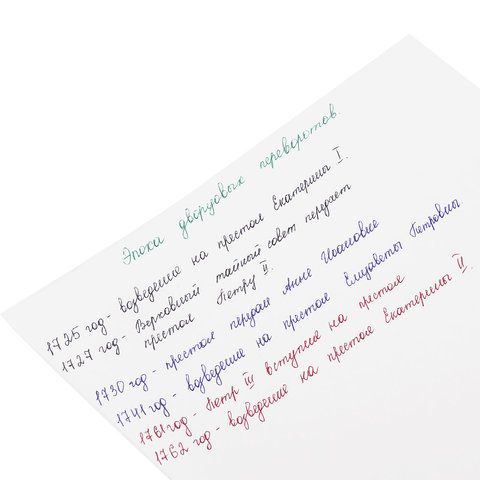 Эпоха дворцовых переворотов.
1725 год - возведение на престол Екатерины I.
1727 год - Верховный тайный совет передает
престол Петру II.
1730 год - престол передан Анне Иоановне
1741 год - возведение на престол Елизаветы Петровны.
1761 год - Петр III вступил на престол
1762 год - возведение на престол Екатерины II.